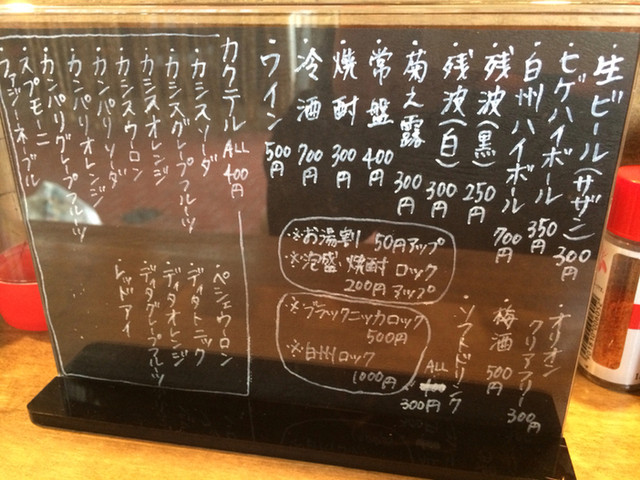 ・生ビール(サザン) 300円
・ヒゲハイボール 350円
・白州ハイボール 700円
・残波(黒) 250円
・残波(白) 300円
・菊之露 300円
・常盤 400円
・焼酎 300円
・冷酒 700円
・ワイン 500円
カクテル ALL 400円
・カシスソーダ
・カシスグレープフルーツ
・カシスオレンジ
・カシスウーロン
・カンパリソーダ
・カンパリオレンジ
・カンパリグレープフルーツ
・スプモーニ
・ファジーネーブル
・ペシェウーロン
・ディタトニック
・ディタオレンジ
・ディタグレープフルーツ
・レッドアイ
※お湯割 50円アップ
※泡盛・焼酎 ロック
200円アップ
※ブラックニッカロック
500円
※白州ロック
1000円
・オリオン
クリアフリー 300円
・梅酒 500円
・ソフトドリンク
ALL 300円